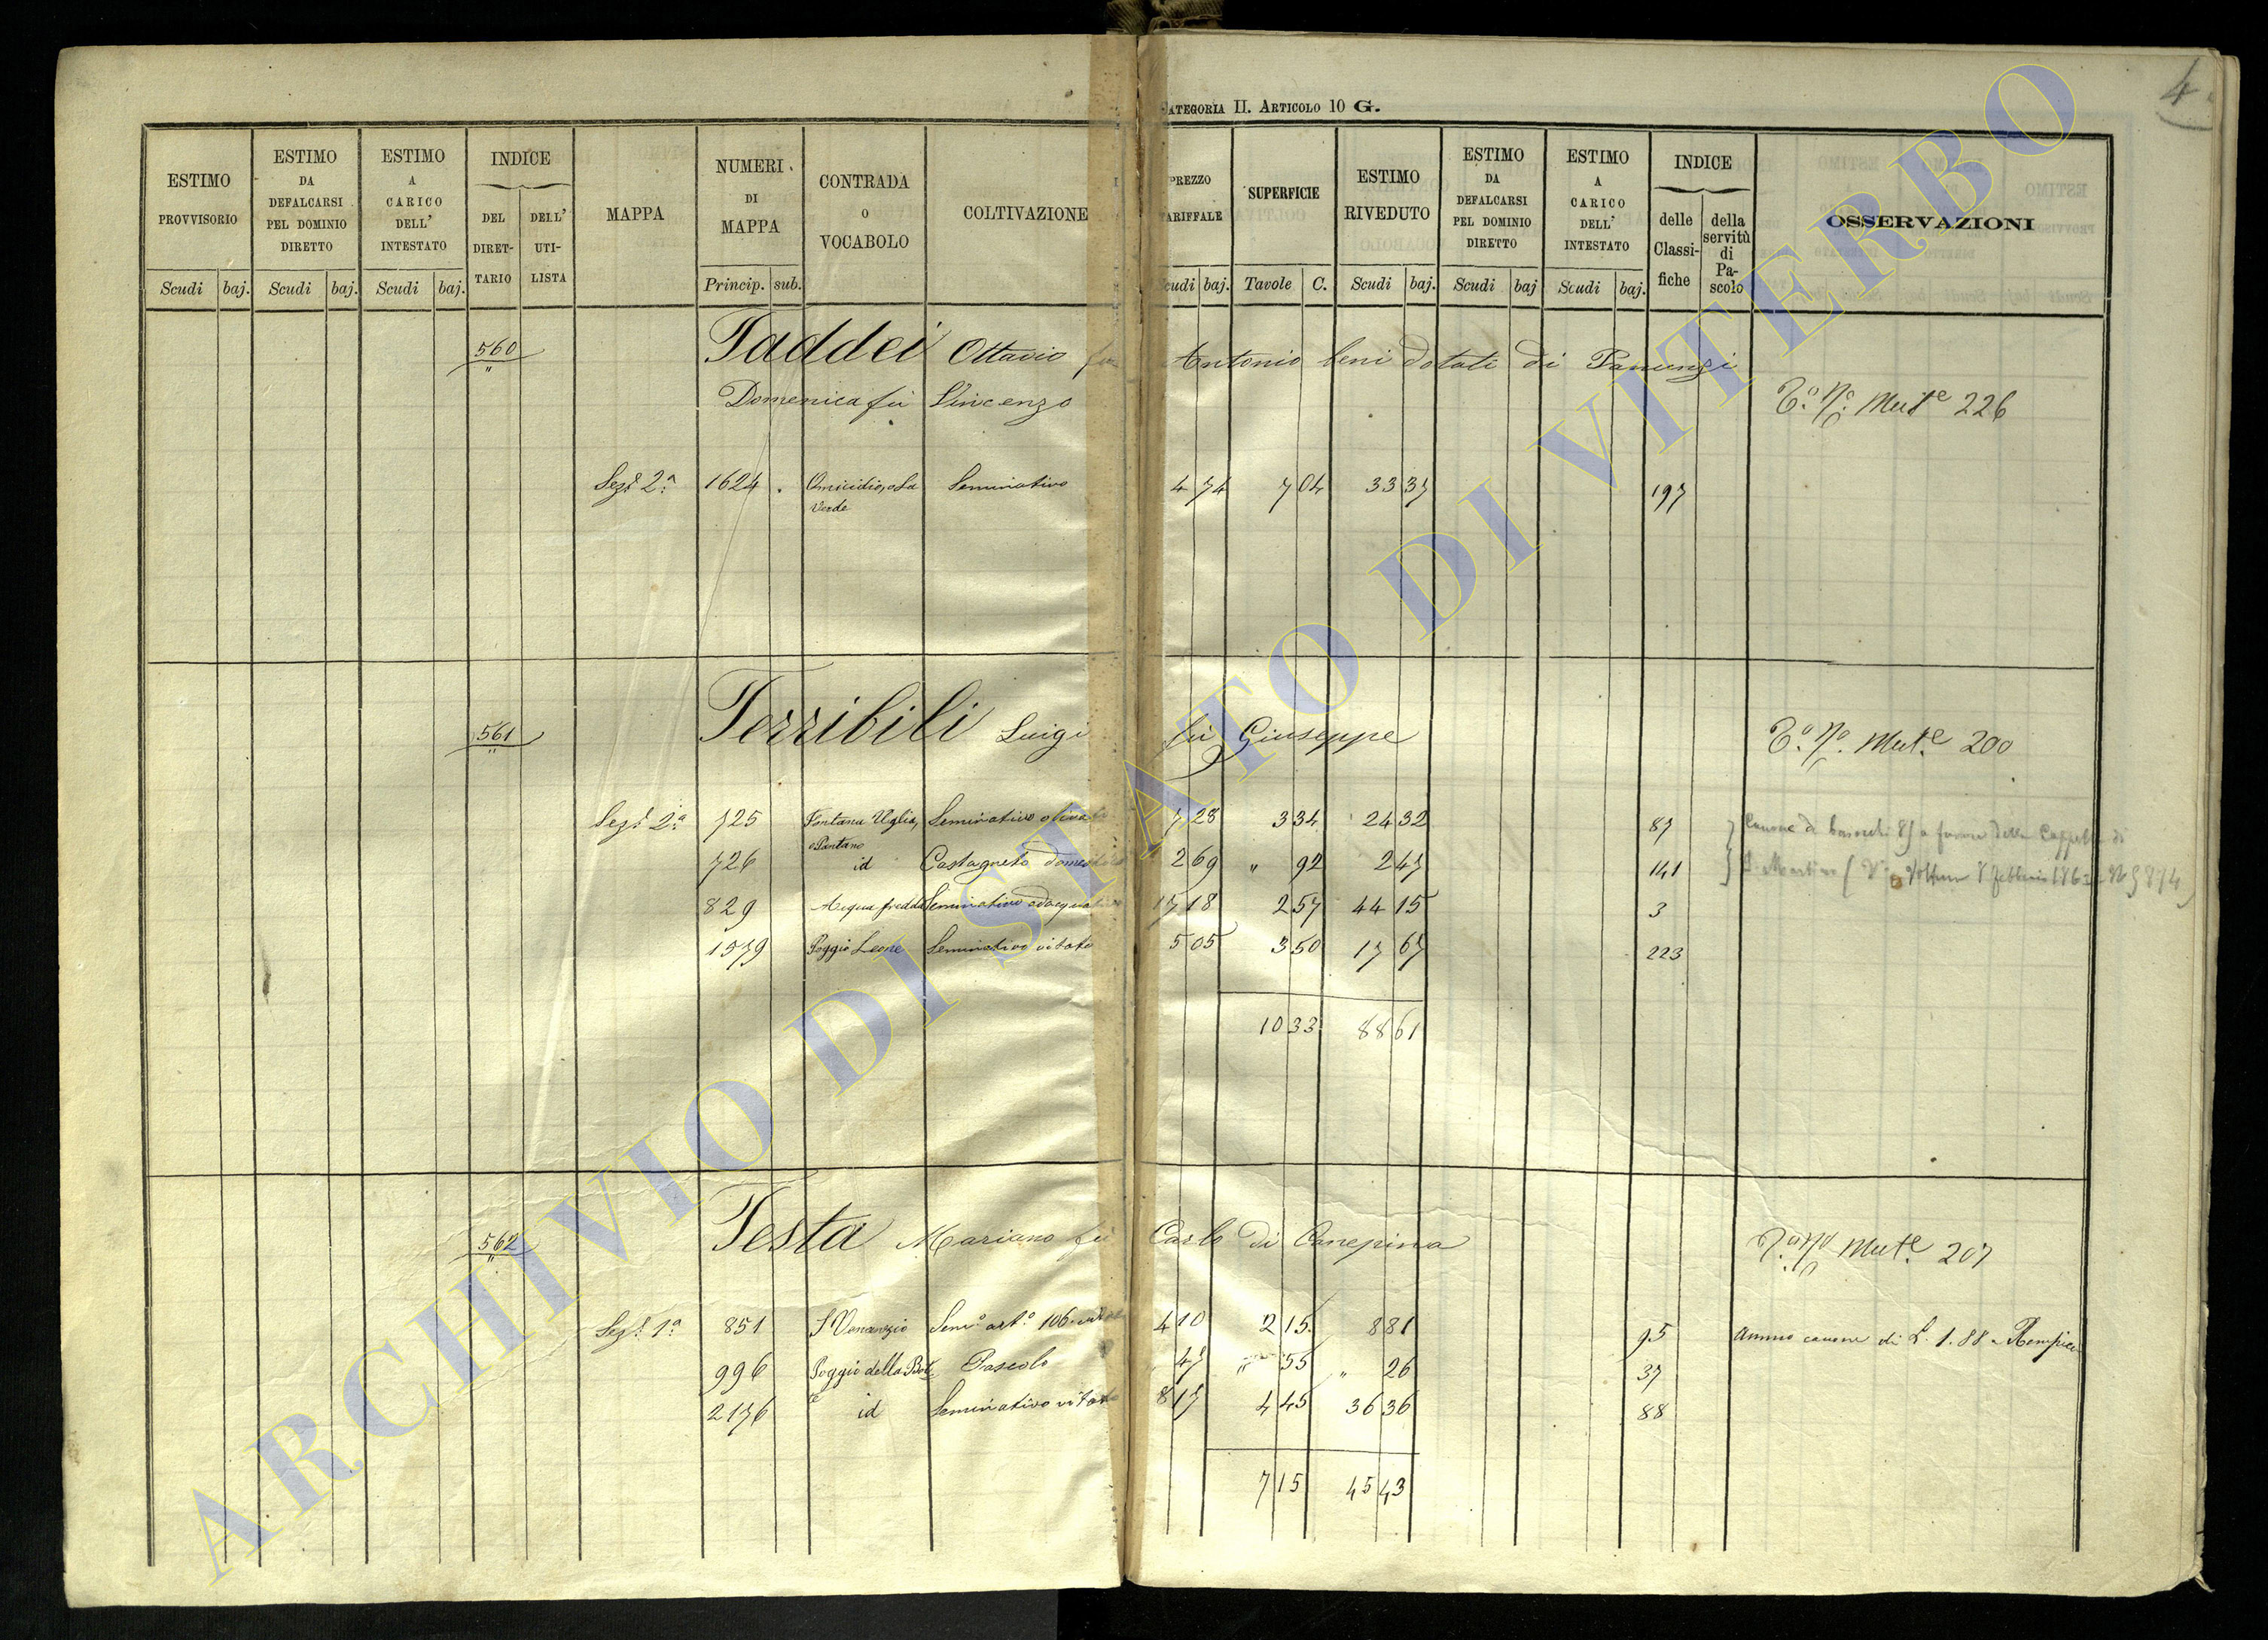 4
CATEGORIA II. ARTICOLO 10 G.
ESTIMO PROVVISORIO Scudi baj.
ESTIMO DA DEFALCARSI PEL DOMINIO DIRETTO Scudi baj.
ESTIMO A CARICO DELL' INTESTATO Scudi baj.
INDICE DEL DIRET-TARIO DELL' UTI-LISTA
MAPPA
NUMERI DI MAPPA Princip. sub.
CONTRADA O VOCABOLO
COLTIVAZIONE
PREZZO TARIFFALE Scudi baj.
SUPERFICIE Tavole C.
ESTIMO RIVEDUTO Scudi baj.
ESTIMO DA DEFALCARSI PEL DOMINIO DIRETTO Scudi baj
ESTIMO A CARICO DELL' INTESTATO Scudi baj.
INDICE delle Classi-fiche della servitù di Pa-scolo
OSSERVAZIONI
560 Taddei Ottavio fu Antonio beni dotati di Panunzi
Domenica fu Vincenzo
Mut.e 226
Sez.e 2.a 1624 Verde Seminativo 4 74 7 04 33 37 197
561 Terribili Luigi fu Giuseppe
Mut.e 200
Sez.e 2.a 725 Fontana Uglia, o Pantano Seminativo olivato 7 28 3 34 24 32 87
726 id Castagneto domestico 2 69 " 92 2 47 141
829 Acqua fredda Seminativo adacquativo 17 18 2 57 44 15 3
1579 Poggio Leone Seminativo vitato 5 05 3 50 17 67 223
Canone di a favore della Cappella di
S. Martino
10 33 88 61
562 Testa Mariano fu Carlo di Canepina
Mut.e 207
Sez.e 1.a 851 S Venanzio Sem.o art.o 106 4 10 2 15 8 81 95 annuo canone di L. 1.88
996 Poggio della Botte Pascolo 47 " 55 " 26 37
2176 id Seminativo vitato 8 17 4 45 36 36 88
7 15 45 43
ARCHIVIO DI STATO DI VITERBO